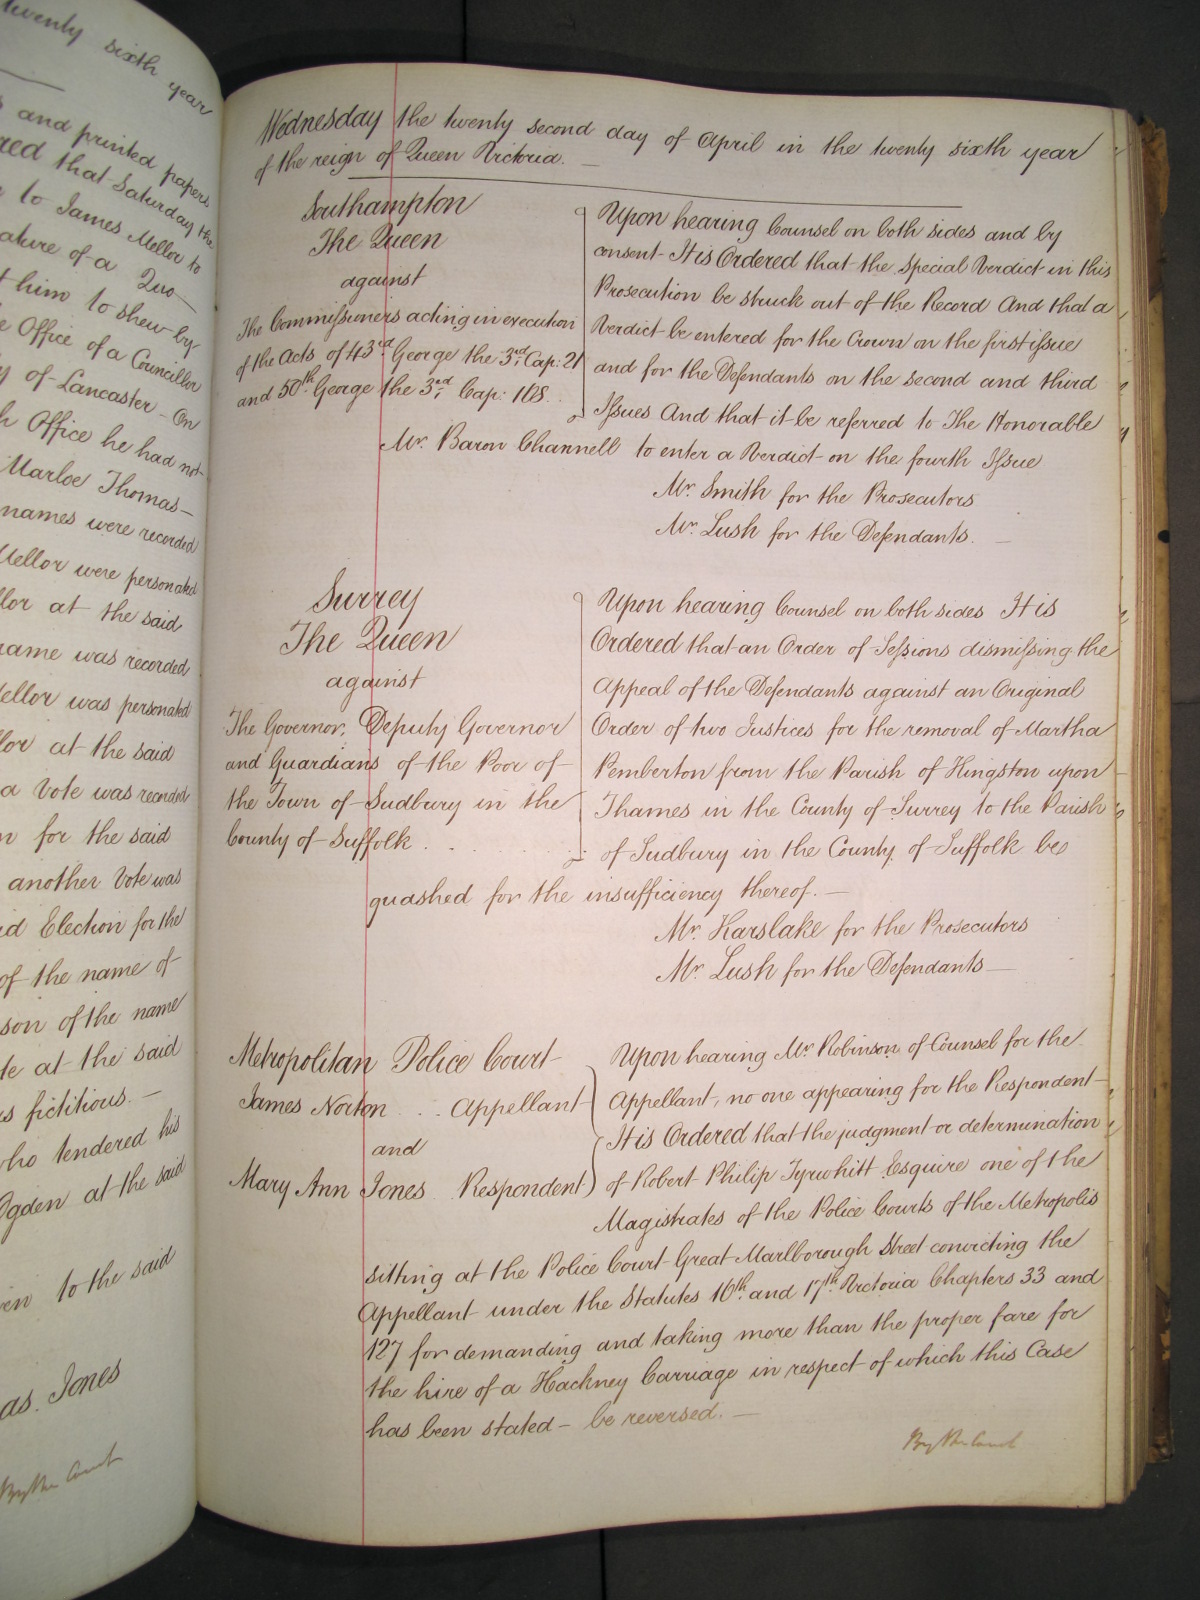 twenty sixth year
and printed papers
that Saturday the
to James Mellor to
ature of a Quo
him to shew by
Office of a Councillor
of Lancaster - On
Office he had not
Marloe Thomas
names were recorded
Mellor were personated
llor at the said
name was recorded
Mellor was personated
llor at the said
a Vote was recorded
for the said
another Vote was
Election for the
of the name of
son of the name
te at the said
fictitious. -
who tendered his
Ogden at the said
to the said
Jones
By the Court
Wednesday the twenty second day of April in the twenty sixth year
of the reign of Queen Victoria. -
Southampton
The Queen
against
The Commissioners acting in execution
of the Acts of 43rd George the 3rd Cap: 21
and 50th George the 3rd Cap: 108.
Upon hearing Counsel on both sides and by
consent It is Ordered that the special Verdict in this
Prosecution be struck out of the Record And that a
Verdict be entered for the Crown on the first issue
and for the Defendants on the second and third
Issues And that it be referred to The Honorable
Mr. Baron Channell to enter a Verdict on the fourth Issue
Mr. Smith for the Prosecutors
Mr. Lush for the Defendants. -
Surrey
The Queen
against
The Governor, Deputy Governor
and Guardians of the Poor of
the Town of Sudbury in the
County of Suffolk . . .
Upon hearing Counsel on both sides It is
Ordered that an Order of Sessions dismissing the
Appeal of the Defendants against an Original
Order of two Justices for the removal of Martha
Pemberton from the Parish of Kingston upon
Thames in the County of Surrey to the Parish
of Sudbury in the County of Suffolk be
quashed for the insufficiency thereof. -
Mr. Karslake for the Prosecutors
Mr. Lush for the Defendants -
Metropolitan Police Court
James Norton . . . Appellant
and
Mary Ann Jones Respondent
Upon hearing Mr Robinson of Counsel for the
Appellant, no one appearing for the Respondent
It is Ordered that the judgment or determination
of Robert Philip Tyrwhitt Esquire one of the
Magistrates of the Police Courts of the Metropolis
sitting at the Police Court Great Marlborough Street convicting the
Appellant under the Statutes 16th and 17th Victoria Chapters 33 and
127 for demanding and taking more than the proper fare for
the hire of a Hackney Carriage in respect of which this Case
has been stated - be reversed. -
By the Court